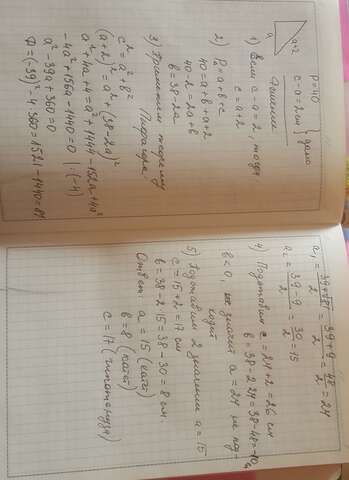 P=40
c-a=2см } дано
a
a+2
Решение
1) Если c-a=2, тогда
c=a+2
2) P=a+b+c
40=a+b+a+2
40-2=2a+b
b=38-2a
3) Применяем теорему
Пифагора
c²=a²+b²
(a+2)²=a²+(38-2a)²
a²+4a+4=a²+1444-152a+4a²
-4a²+156a-1440=0 |:(-4)
a²-39a+360=0
D=(-39)²-4·360=1521-1440=81
a₁=(39+√81)/2=(39+9)/2=48/2=24
a₂=(39-9)/2=30/2=15
4) Подставим c=24+2=26 см
b=38-2·24=38-48=-10
b<0, значит a=24 не под-
ходит
5) Подставим 2 значение a=15
c=15+2=17 см
b=38-2·15=38-30=8 см
Ответ: a=15 (катет)
b=8 (катет)
c=17 (гипотенуза)